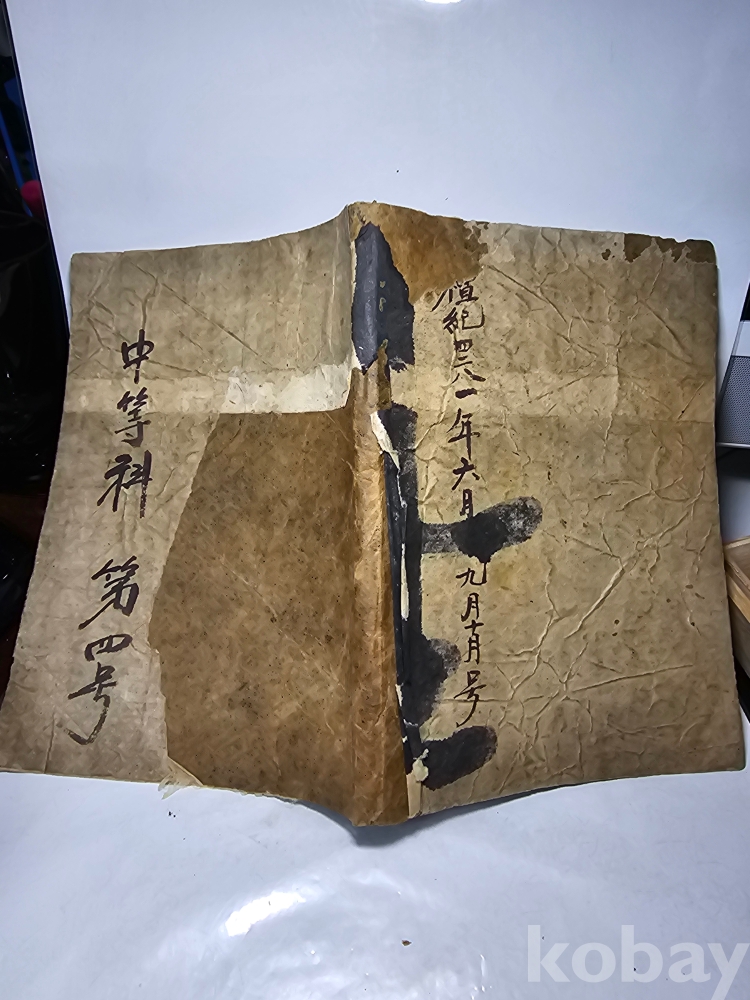 檀紀四二八一年六月 九月十月号
中等科 第四号
kobay